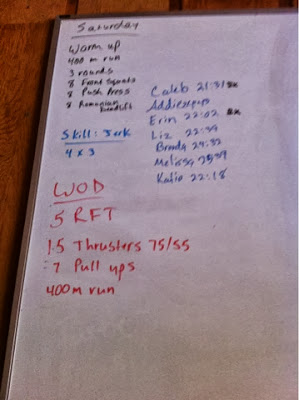 Saturday
Warm up
400 m run
3 rounds
8 Front Squats
8 Push Press
8 Romanian Deadlift
Skill: Jerk
4 x 3
Caleb 21:31 Rx
Erin 22:02 Rx
Liz 22:39
Melissa
Katie 22:18
WOD
5 RFT
15 Thrusters 75/55
7 Pull ups
400m run